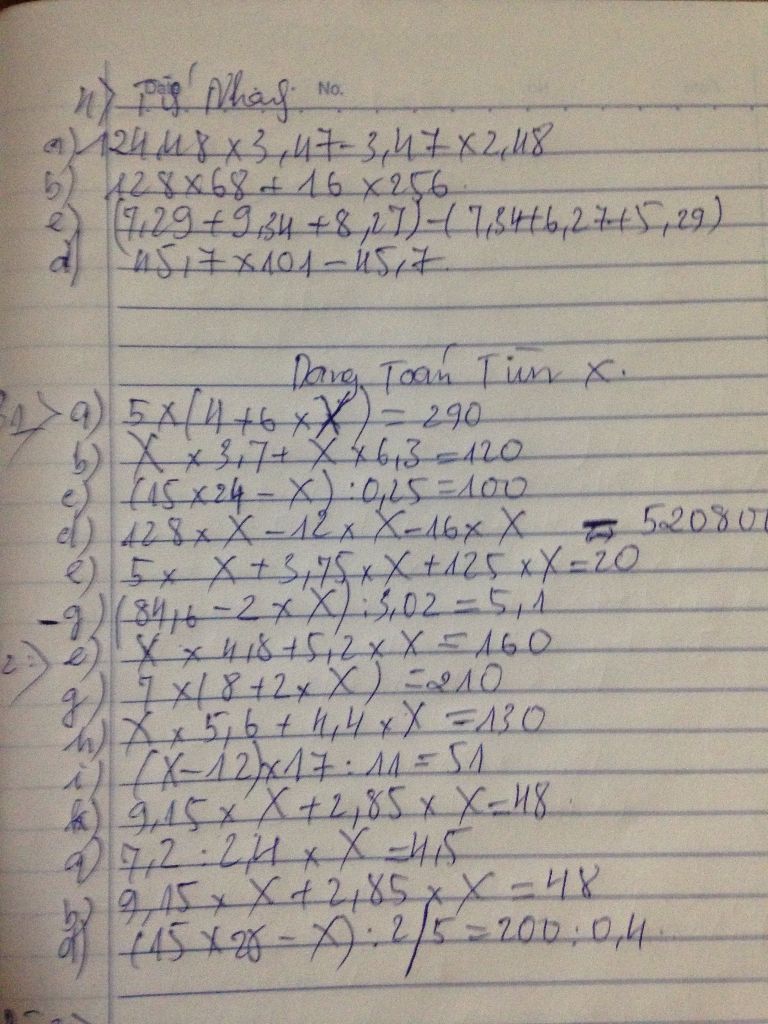 Date No.
4) Tính Nhanh
a) 124,48 x 3,47 - 3,47 x 2,48
b) 128 x 68 + 16 x 256
c) (7,29 + 9,34 + 8,27) - (7,34 + 6,27 + 5,29)
d) 45,7 x 101 - 45,7
Dạng Toán Tìm X.
1) a) 5 x (4 + 6 x X) = 290
b) X x 3,7 + X x 6,3 = 120
c) (15 x 24 - X) : 0,25 = 100
d) 128 x X - 12 x X - 16 x X = 520800
e) 5 x X + 3,75 x X + 125 x X = 20
g) (84,6 - 2 x X) : 3,02 = 5,1
2) e) X x 4,8 + 5,2 x X = 160
g) 7 x (8 + 2 x X) = 210
h) X x 5,6 + 4,4 x X = 130
i) (X - 12) x 17 : 11 = 51
k) 9,15 x X + 2,85 x X = 48
a) 7,2 : 2,4 x X = 4,5
b) 9,15 x X + 2,85 x X = 48
d) (15 x - X) : 2/5 = 200 : 0,4